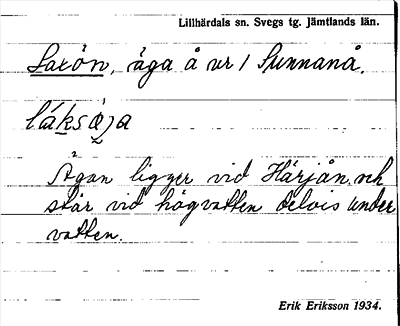 Lillhärdals sn. Svegs tg. Jämtlands län.
Laxön, äga å nr 1 Sunnanå.
láksø̀ɲa
Ägan ligger vid Härjån och
står vid högvatten delvis under
vatten.
Erik Eriksson 1934.